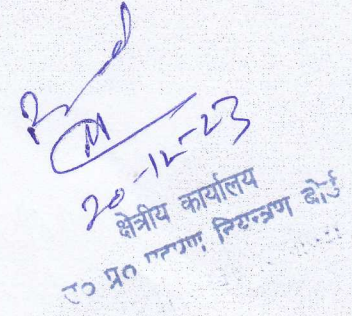 20-12-23
क्षेत्रीय कार्यालय
उ० प्र० नियन्त्रण बोर्ड